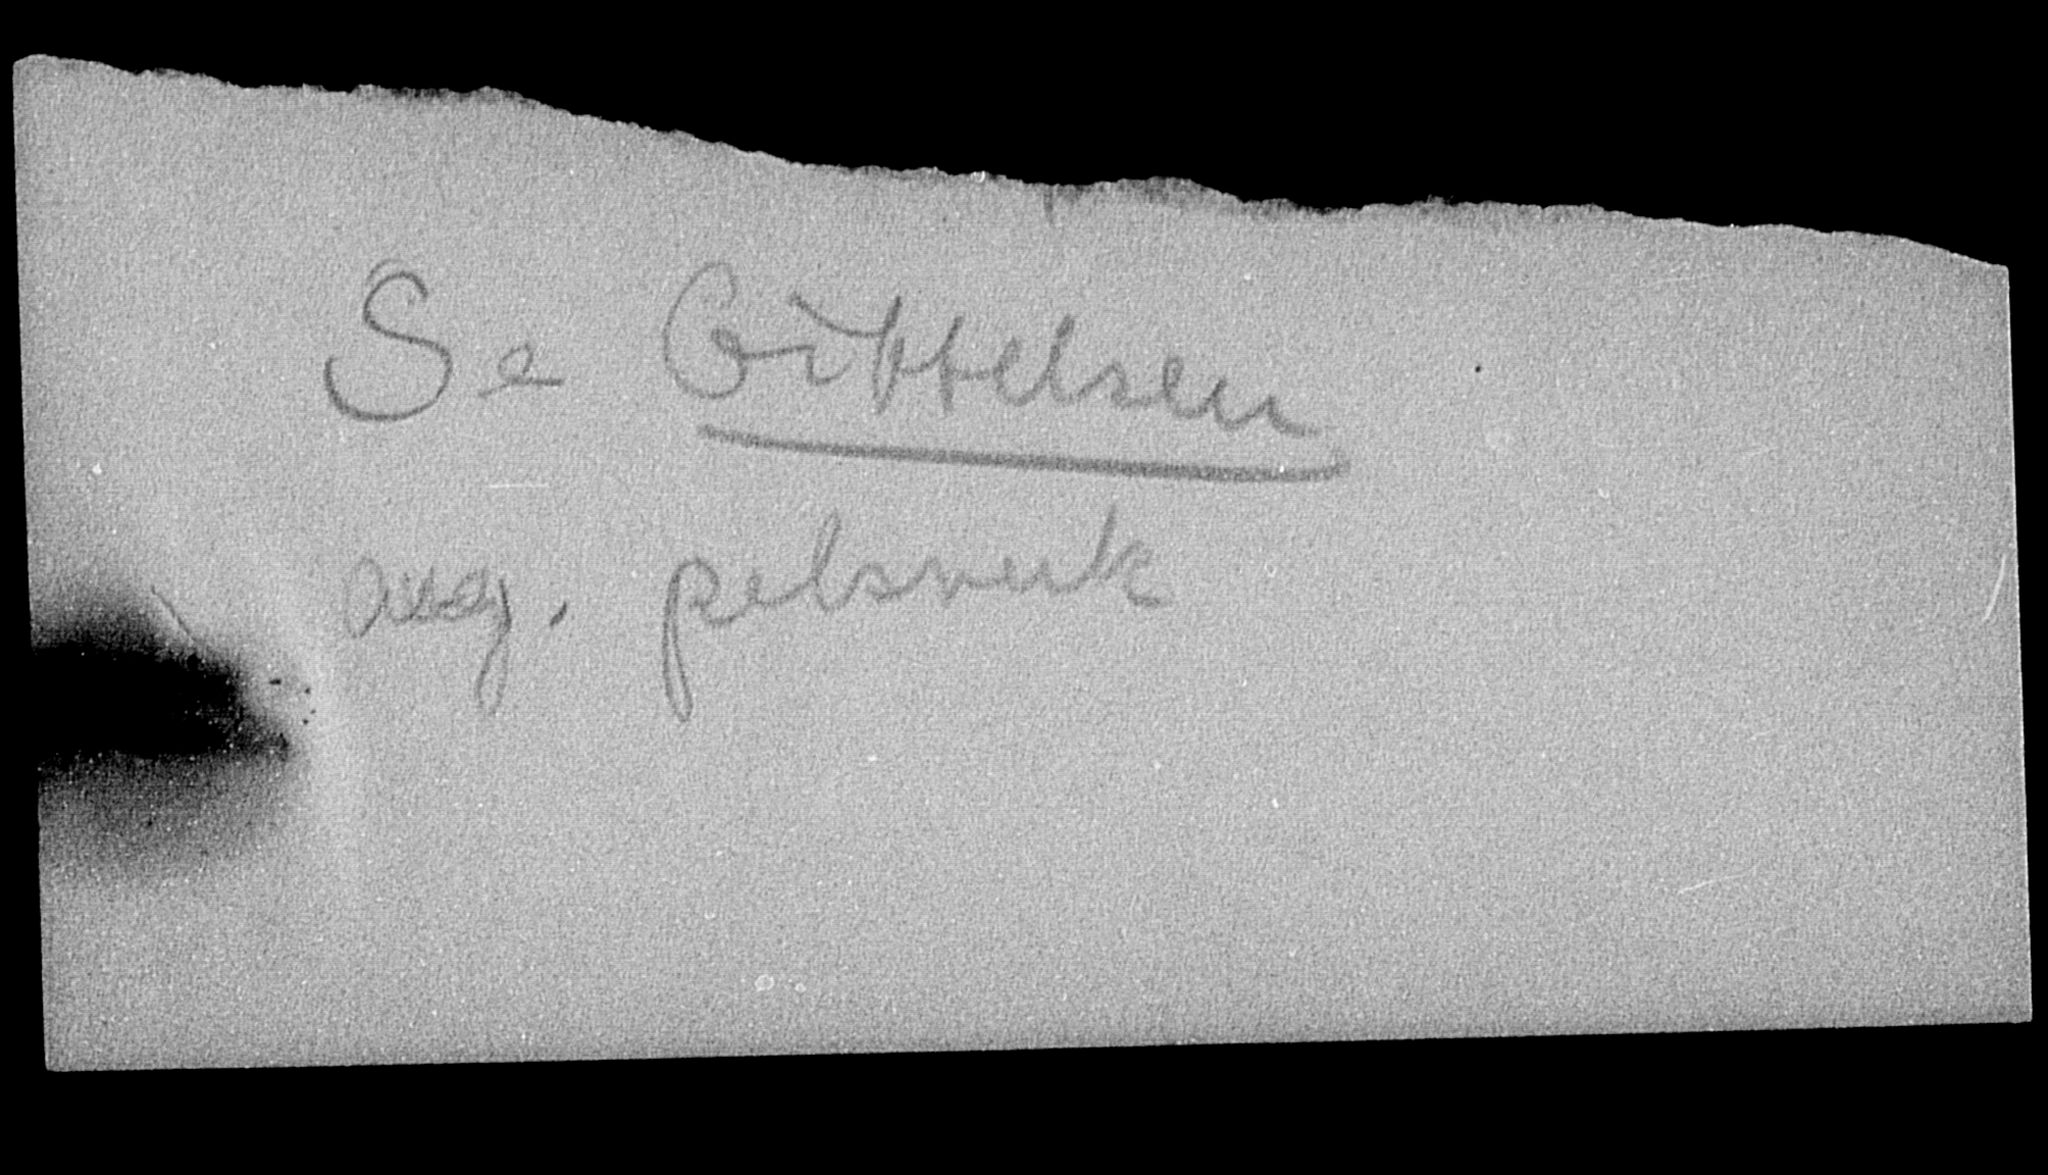 Se Gittelsen
ang. pelsverk